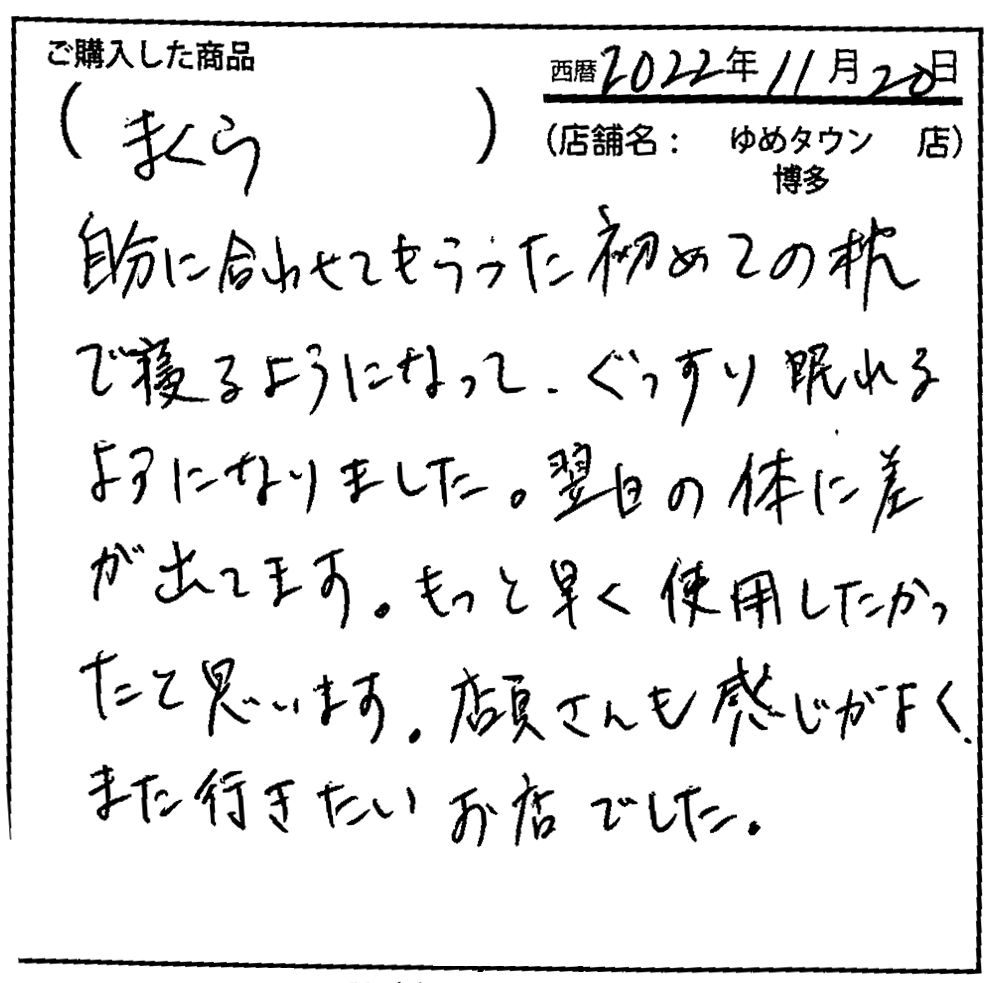 ご購入した商品
西暦2022年11月20日
(まくら)
(店舗名： ゆめタウン 店)
博多
自分に合わせてもらった初めての枕
で寝るようになって、ぐっすり眠れる
ようになりました。翌日の体に差
が出てます。もっと早く使用したかっ
たと思います。店員さんも感じがよく、
また行きたいお店でした。